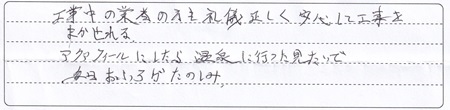 工事中の業者の方も礼儀正しく安心して工事を
まかせれる
アクアフィールにしたら温泉に行った見たいで
毎日おふろがたのしみ。